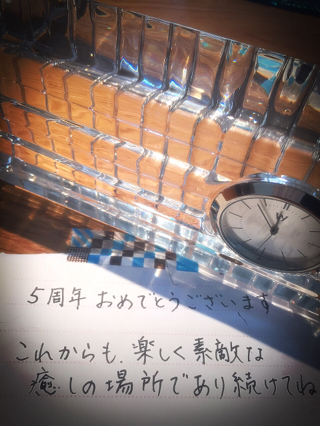 5周年 おめでとうございます
これからも、楽しく素敵な
癒しの場所であり続けてね